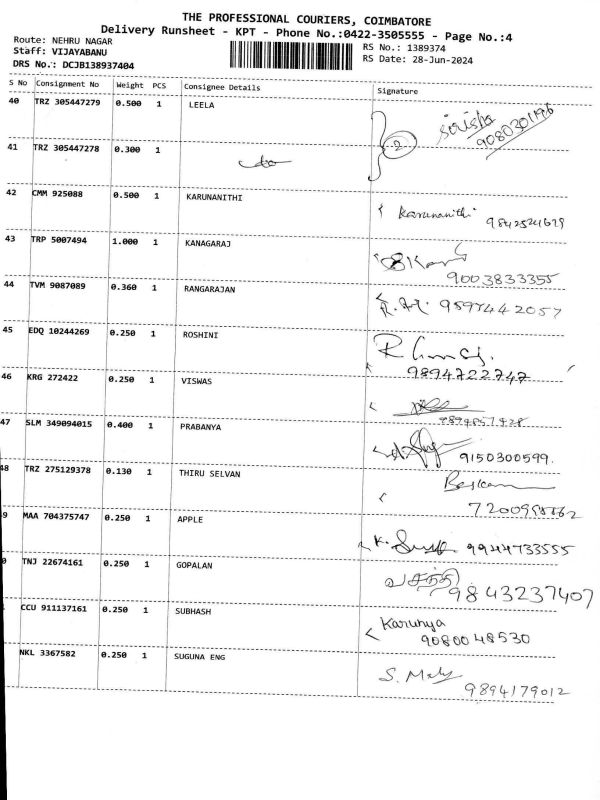 THE PROFESSIONAL COURIERS, COIMBATORE
Delivery Runsheet - KPT - Phone No.:0422-3505555 - Page No.:4
Route: NEHRU NAGAR
RS No.: 1389374
Staff: VIJAYABANU
RS Date: 28-Jun-2024
DRS No.: DCJB138937404
S No Consignment No Weight PCS Consignee Details Signature
40 TRZ 305447279 0.500 1 LEELA sirisha
41 TRZ 305447278 0.300 1 2
42 CMM 925088 0.500 1 KARUNANITHI Karunanithi
43 TRP 5007494 1.000 1 KANAGARAJ
9003833355
44 TVM 9087089 0.360 1 RANGARAJAN
45 EDQ 10244269 0.250 1 ROSHINI
9894722747
46 KRG 272422 0.250 1 VISWAS
47 SLM 349094015 0.400 1 PRABANYA 9150300599.
48 TRZ 275129378 0.130 1 THIRU SELVAN
9 MAA 704375747 0.250 1 APPLE K. 9944733555
0 TNJ 22674161 0.250 1 GOPALAN வசந்தி
9843237407
CCU 911137161 0.250 1 SUBHASH Karunya
9080048530
NKL 3367582 0.250 1 SUGUNA ENG S.
9894179012